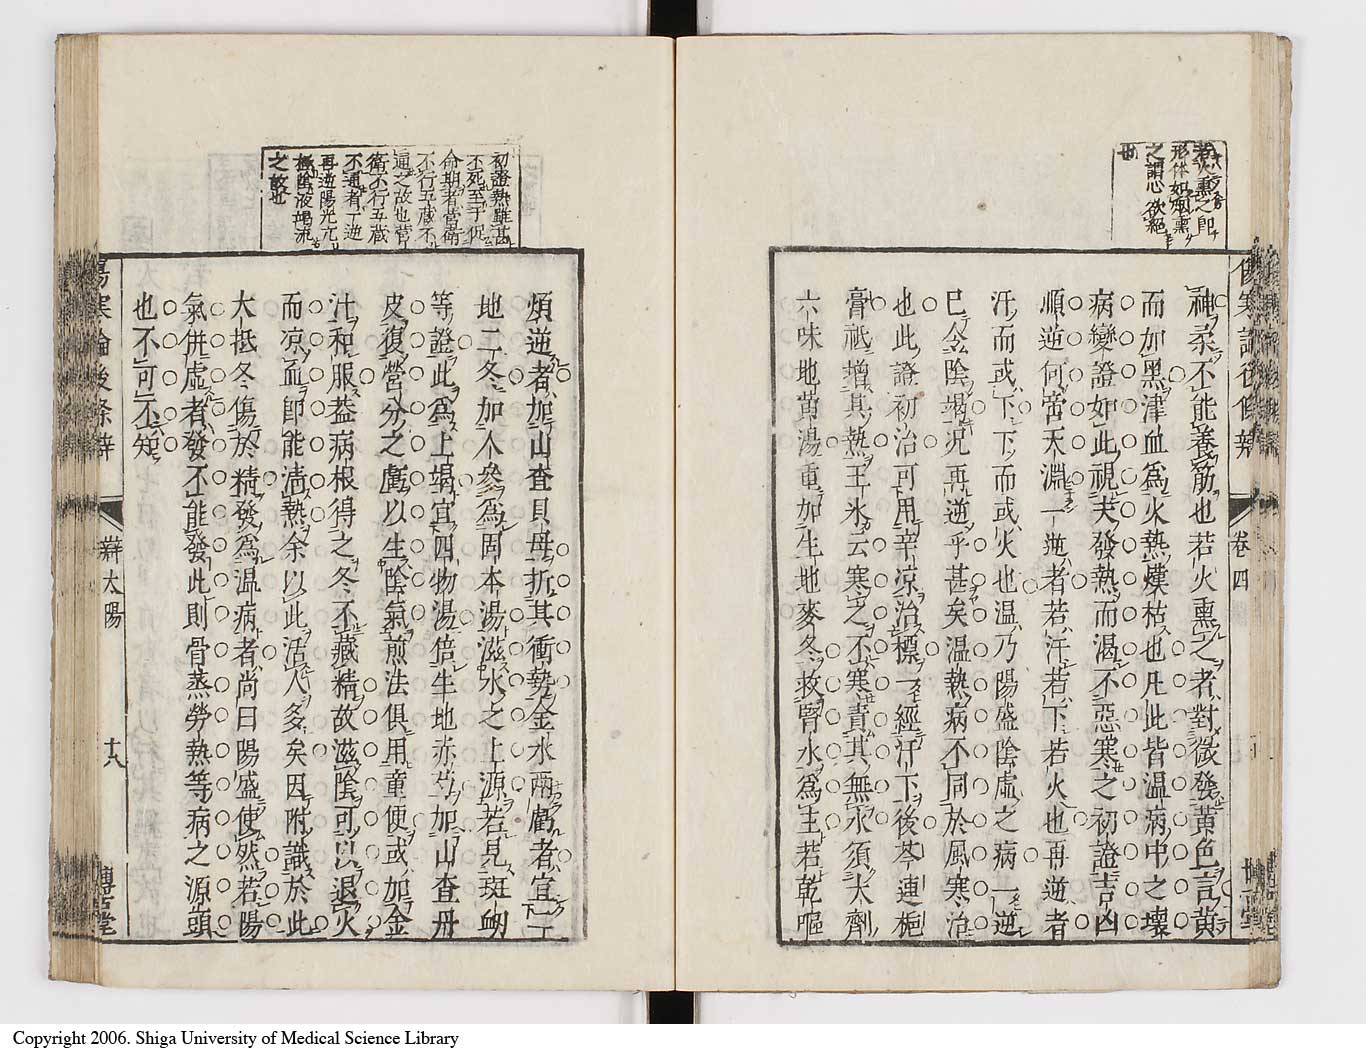 火熏之即
形体如烟熏
之謂心欲絶
也
傷寒論後條辨 卷四
神柔不能養筋也若火熏之者對微發黃色言黃
而加黑津血爲火熱熯枯也凡此皆温病中之壞
病變證如此視夫發熱而渴不惡寒之初證吉凶
順逆何啻天淵一逆者若汗若下若火也再逆者
汗而或下下而或火也温乃陽盛陰虛之病一逆
已令陰竭况再逆乎甚矣温熱病不同於風寒治
也此證初治可用辛凉治標一經汗下後芩連梔
膏祗增其熱王氷云寒之不寒責其無水須大劑
六味地黄湯重加生地麥冬救腎水爲主若乾嘔
初證熱雖甚
不死至于促
命期者當衛
不行五蔵不
通之故也營
衛不行五蔵
不通者丁逆
再逆陽光亢
極陰液竭流
之故也
煩逆者加山查貝母折其衝勢金水兩虧者宜二
地二冬加人參爲固本湯滋水之上源若見斑衂
等證此爲上竭宜四物湯倍生地赤芍加山查丹
皮復營分之虧以生陰氣煎法俱用童便或加金
汁和服葢病根得之冬不藏精故滋陰可以退火
而凉血即能清熱余以此活人多矣因附識於此
大抵冬傷於精發爲温病者尚曰陽盛使然若陽
氣併虛者發不能發此則骨蒸勞熱等病之源頭
也不可不知
傷寒論後條辨 辨太陽 十八 博古堂
Copyright 2006. Shiga University of Medical Science Library